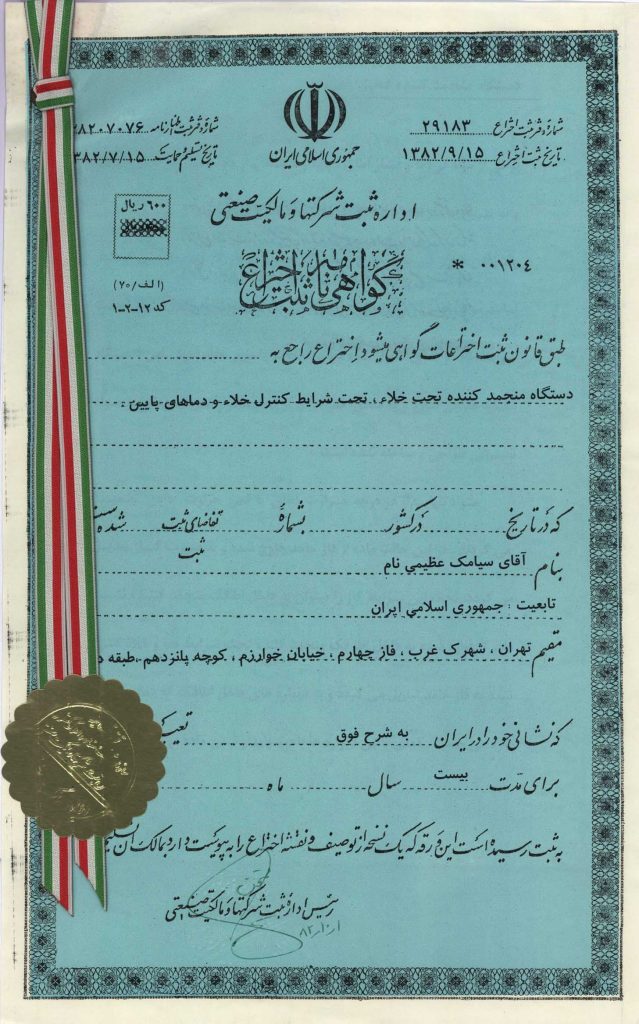 جمهوری اسلامی ایران
شماره دفتر ثبت اختراع ۲۹۱۸۳
تاریخ ثبت اختراع ۱۳۸۲/۹/۱۵
شماره دفتر ثبت اظهارنامه ۳۸۲۰۷۰۷۶
تاریخ تسلیم و حمایت ۱۳۸۲/۷/۱۵
اداره ثبت شرکتها و مالکیت صنعتی
۶۰۰ ریال
گواهی نامه ثبت اختراع
۰۰۱۲۰۴ *
(الف/۲۰)
کد ۱۲-۲-۱
طبق قانون ثبت اختراعات گواهی میشود اختراع راجع به
دستگاه منجمد کننده تحت خلاء ، تحت شرایط کنترل خلاء و دماهای پایین .
که در تاریخ در کشور بشمارهٔ تقاضای ثبت شده
ثبت
بنام آقای سیامک عظیمی نام
تابعیت : جمهوری اسلامی ایران
مقیم تهران ، شهرک غرب ، فاز چهارم ، خیابان خوارزم ، کوچه پانزدهم ، طبقه
که نشانی خود را در ایران به شرح فوق
برای مدت بیست سال ماه
به ثبت رسیده است این ورقه که یک نسخه از توصیف و نقشه اختراع را به پیوست دارد بمالک آن
رئیس ادارهٔ ثبت شرکتها و مالکیت صنعتی